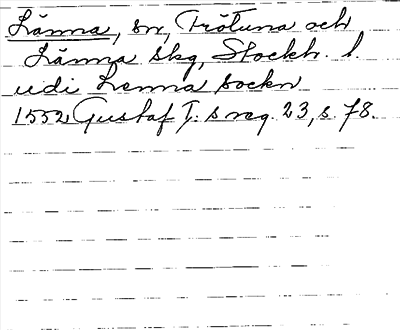 Länna, sn, Frötuna och
Länna skg, Stockh. l.
udi Lenna sockn
1552 Gustaf I:s reg. 23, s. 78.